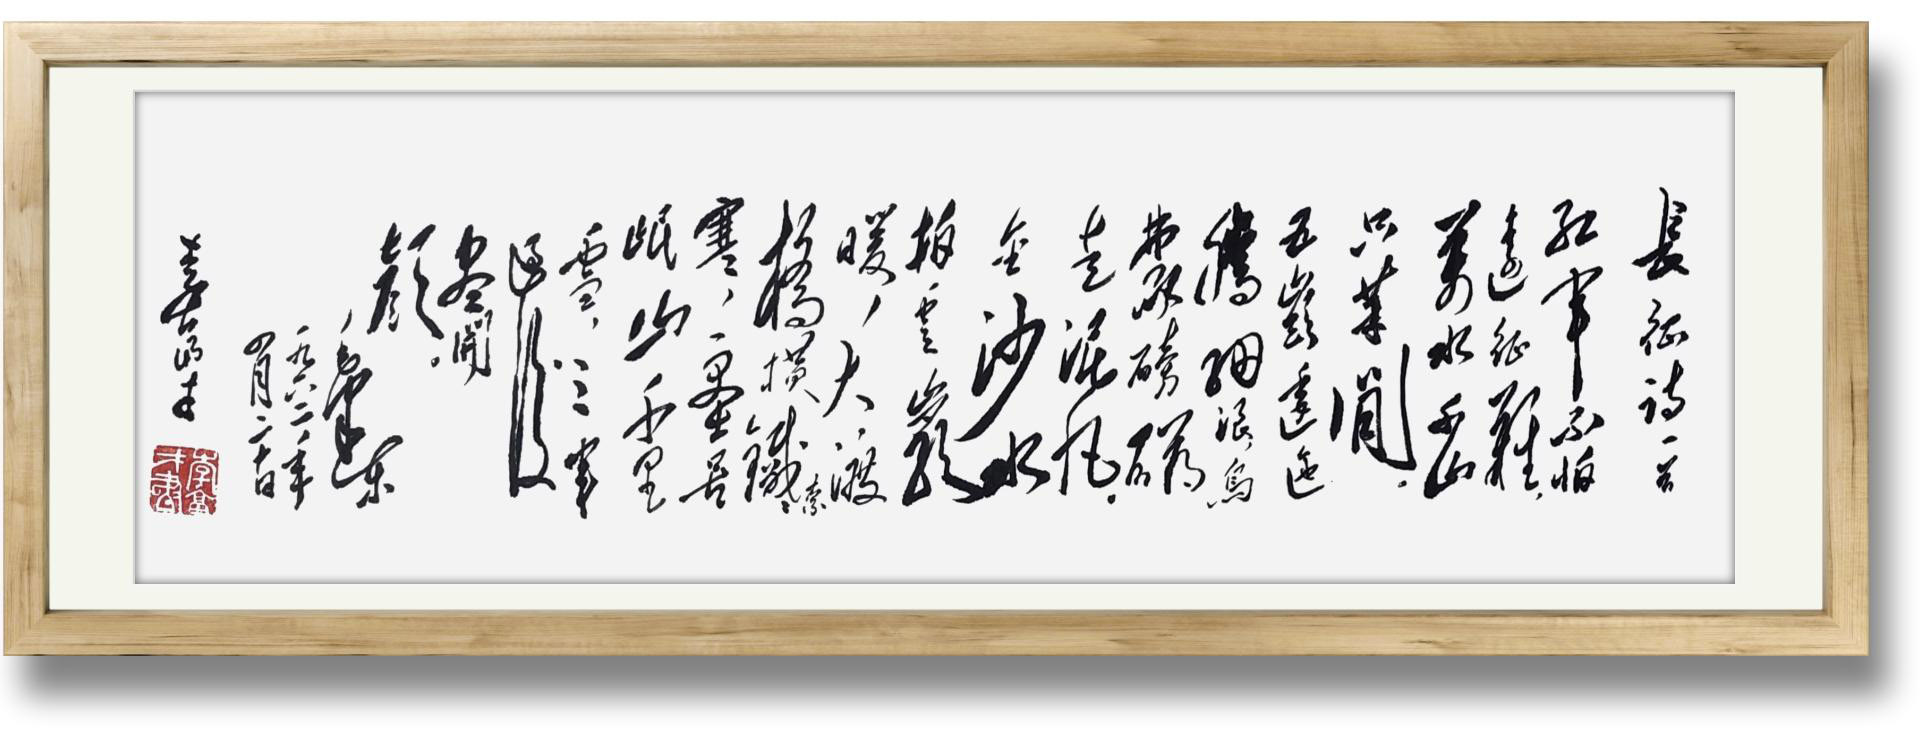 長征詩一首
紅軍不怕
遠征難,
萬水千山
只等閒.
五嶺逶迤
騰細浪,烏
蒙磅礴
走泥丸.
金沙水
拍雲崖
暖,大渡
橋橫鐵索
寒,更喜
岷山千里
雪,三軍
過後
盡開
顏。
毛澤東
一九六二年
四月二十日